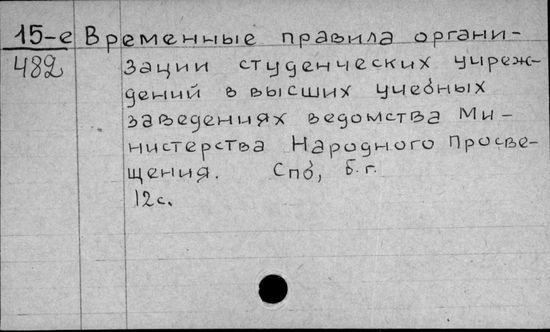 15-е Временные правила органи-
482 зации студенческих учреж-
дений в высших учебных
заведениях ведомства Ми-
нистерства Народного Просве-
щения. Спб, б.г.
12с.